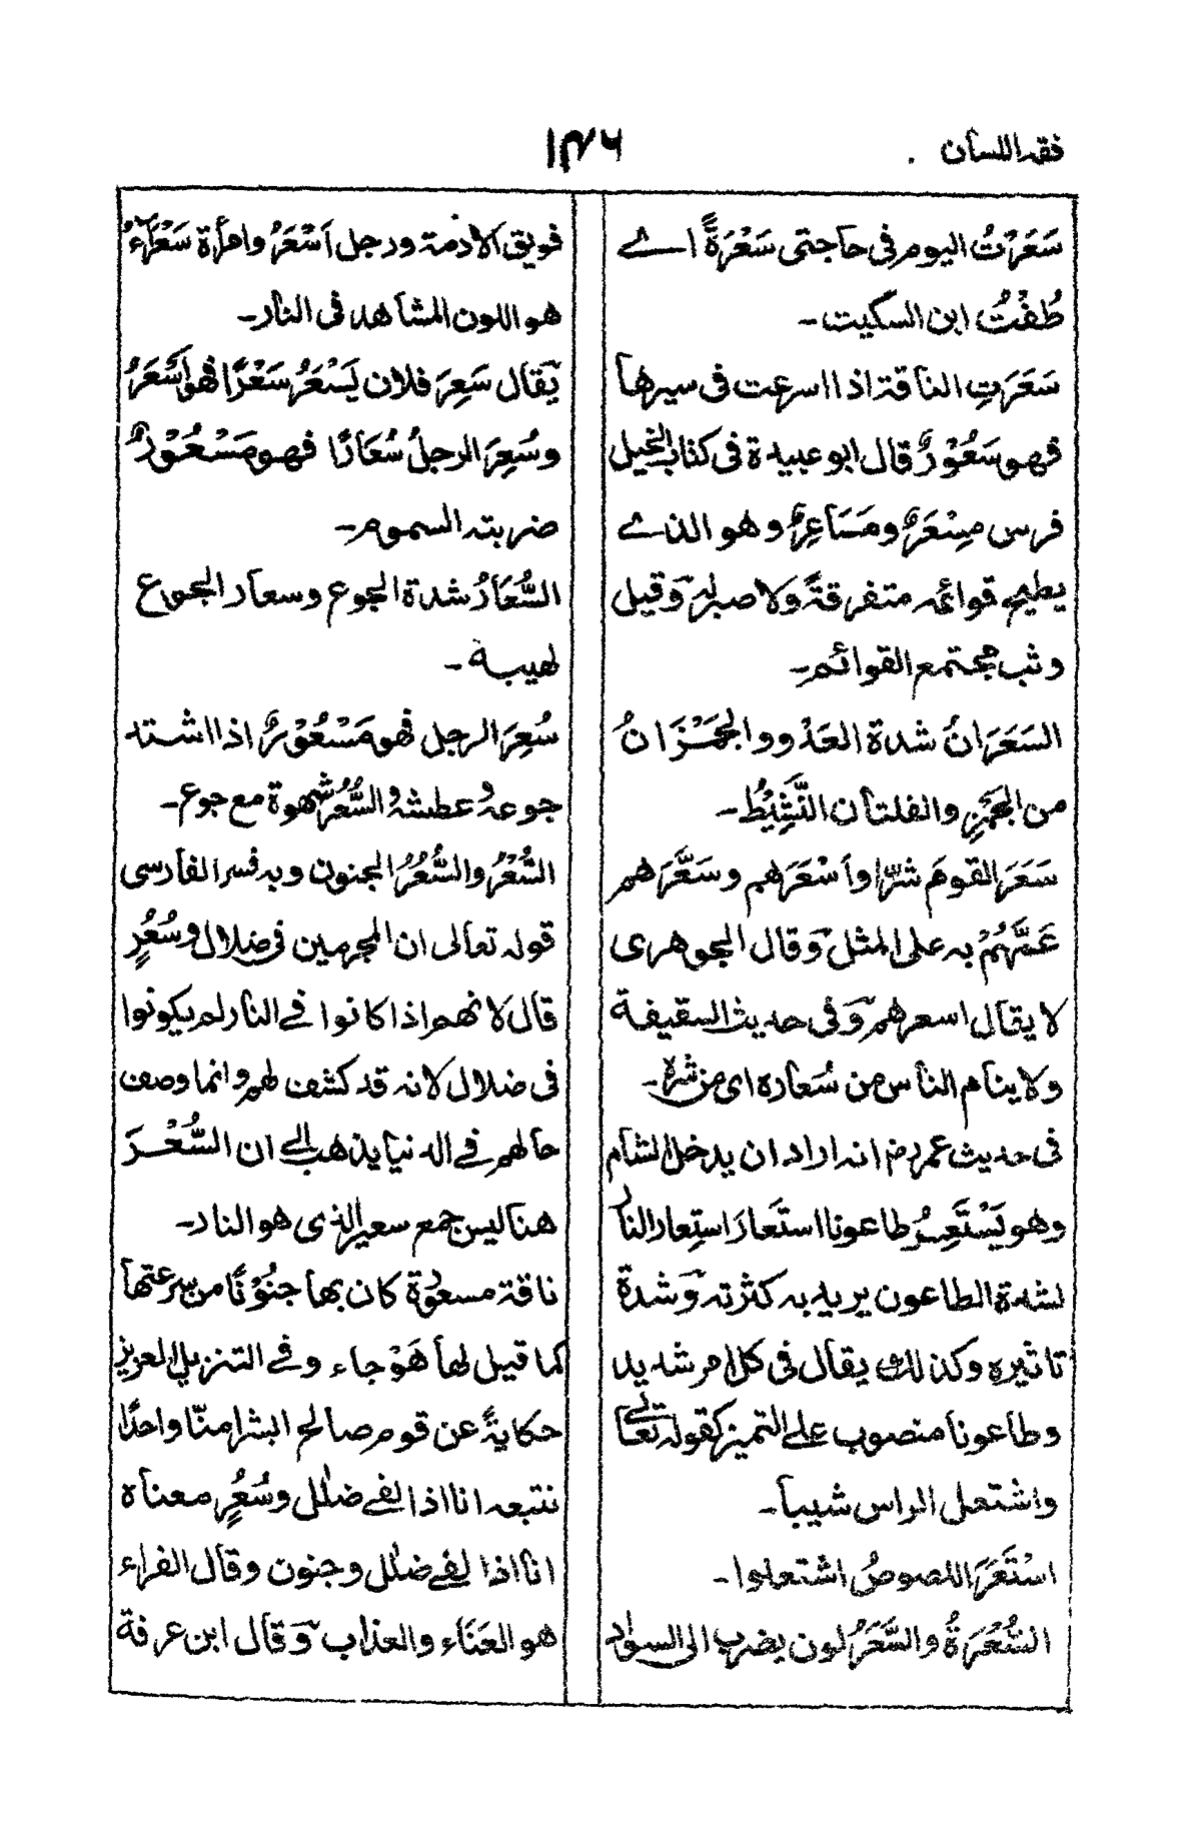 فقه اللسان
١٣٧٦
سَعَرْتُ اليوم فى حاجتى سَعْرَةً اے
طُفْتُ ابن السكيت۔
سَعَرَتِ الناقة اذا اسرعت فى سيرها
فهو سَعُوْرٌ قال ابو عبيدة فى كتاب الخيل
فرس مِسْعَرٌ ومَسَاعِرٌ وهو الذے
يطيح قوائمه متفرقةً ولا صبر له وقيل
وثب مجتمع القوائم۔
السَعَرَانُ شدة العَدْو والجَمَزَانُ
من الجَمْزِ والفلتان النَّشِيْطُ۔
سَعَرَ القومَ شرًّا واَسْعَرَهم وسَعَّرَهم
عَمَّهُمْ به على المثل وقال الجوهرى
لا يقال اسعرهم وفى حديث السقيفة
ولا ينام الناس من سُعاره اى من شره۔
فى حديث عمر رض انه اراد ان يدخل الشام
وهو يَسْتَعِرُ طاعونا استَعارَ استِعار النار
لشدة الطاعون يريد به كثرته وشدة
تاثيره وكذلك يقال فى كل امر شديد
وطاعونا منصوب على التميز كقوله تعالے
واشتعل الراس شيبا۔
اسْتَعَرَ اللصوصُ اشتعلوا۔
السُّعْرَةُ والسَّعَرُ لون يضرب الى السواد
فويق الادمة ورجل اَسْعَرُ وامرأة سَعْرَآءُ
هو اللون المشاهد فى النار۔
يقال سَعِرَ فلان يَسْعَرُ سَعْرًا فهو اَسْعَرُ
وسُعِرَ الرجلُ سُعَارًا فهو مَسْعُوْرٌ
ضربته السموم۔
السُّعَارُ شدة الجوع وسعار الجوع
لهيبة۔
سُعِرَ الرجل فهو مَسْعُوْرٌ اذا اشتد
جوعهُ وعطشهُ والسُّعُرُ شهوة مع جوع۔
السُّعْرُ والسُّعُرُ الجنون وبه فسر الفارسى
قوله تعالى ان المجرمين فى ضلال وسُعُرٍ
قال لانهم اذا كانوا فے النار لم يكونوا
فى ضلال لانه قد كشف لهم وانما وصف
حالهم فے الدنيا يذهب الے ان السُّعْرَ
هنا ليس جمع سعير الذى هو النار۔
ناقة مسعورة كان بها جنُوْنًا من سرعتها
كما قيل لها هَوْجاء وفے التنزيل العزيز
حكايةً عن قوم صالح ابشرا منّا واحدًا
نتبعه انا اذا لفے ضلٰل وسُعُرٍ معناه
انا اذا لفے ضلٰل وجنون وقال الفراء
هو العَنَاء والعذاب وقال ابن عرفة